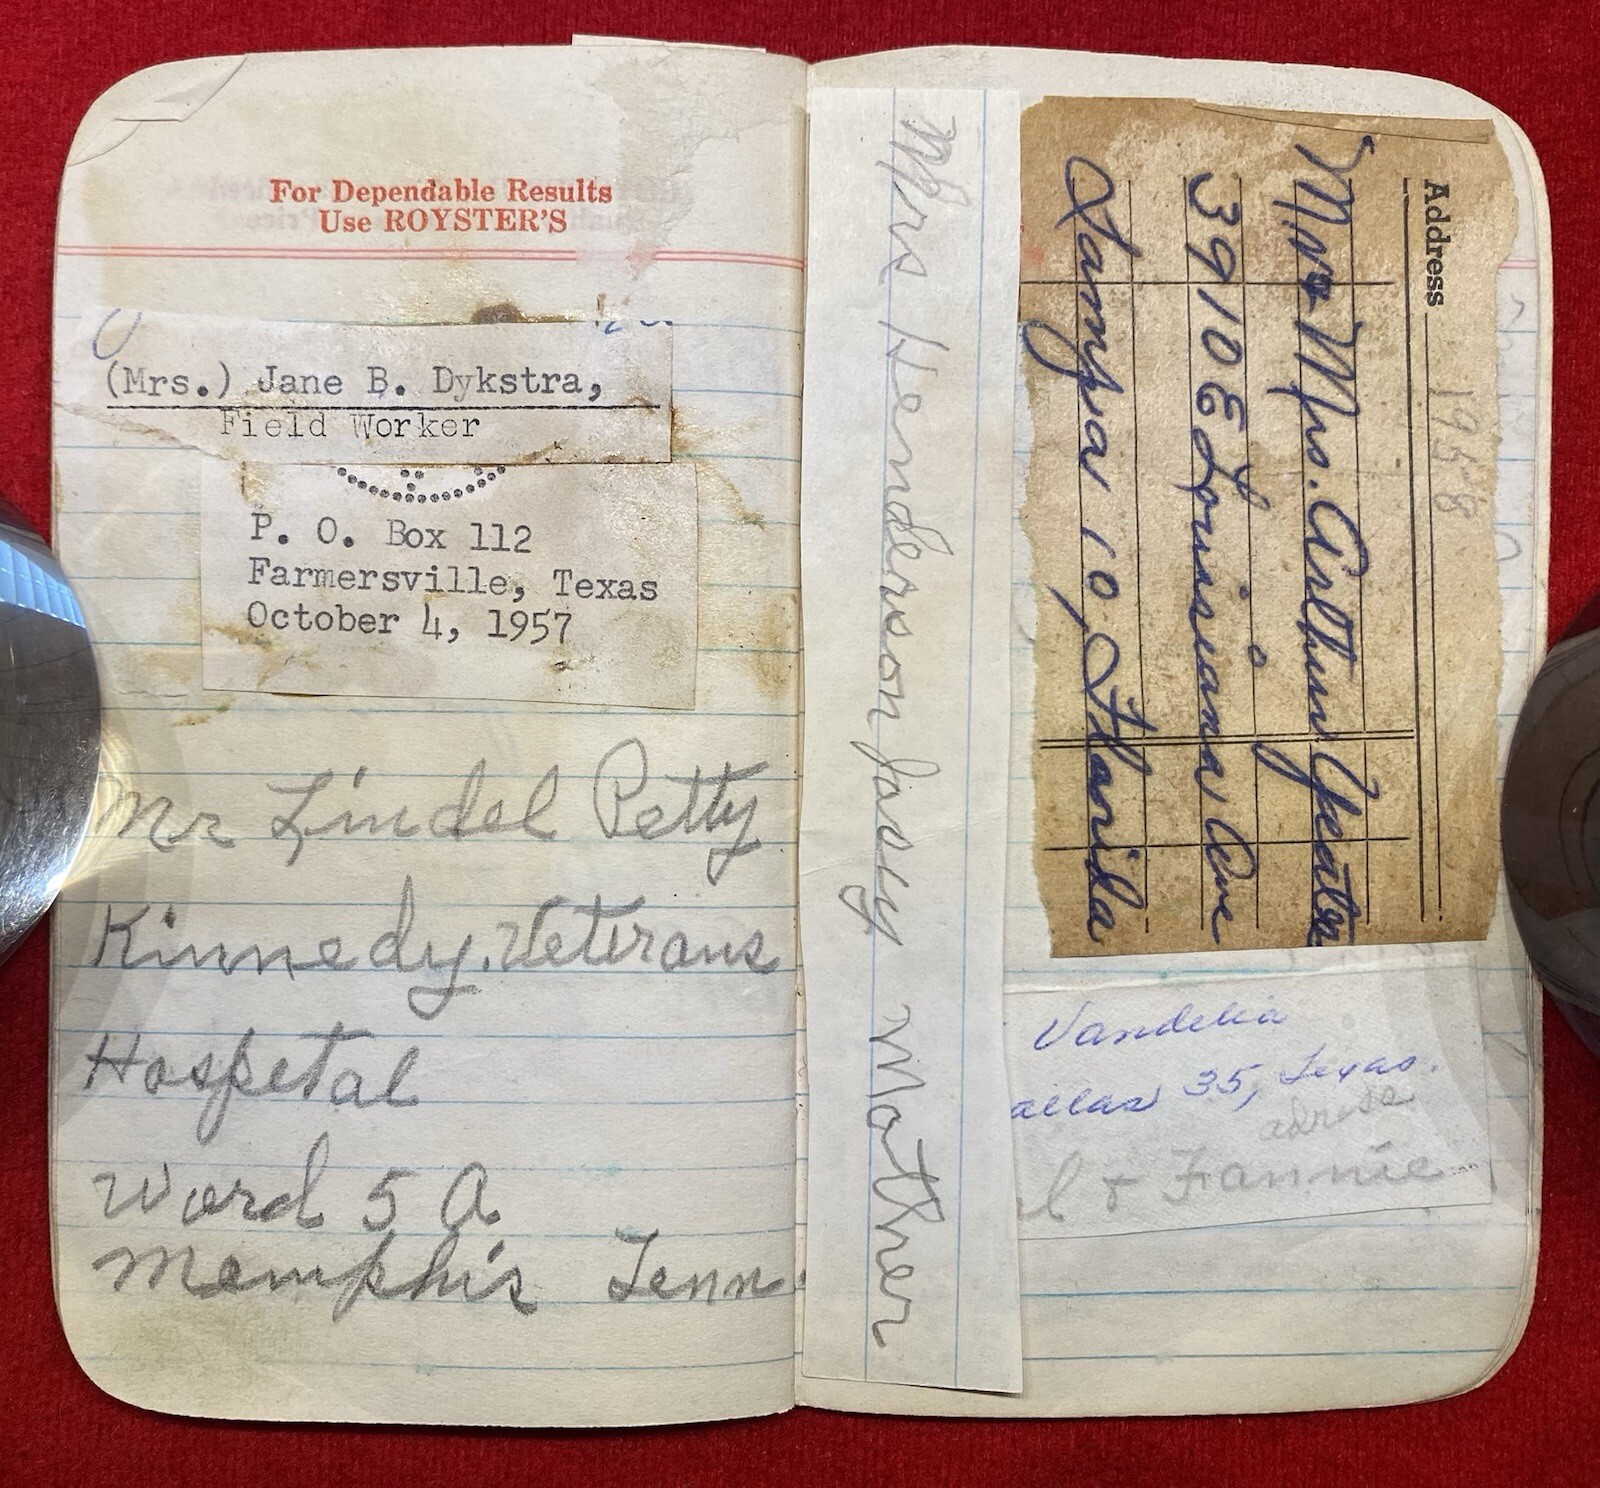 For Dependable Results
Use ROYSTER'S
(Mrs.) Jane B. Dykstra,
Field Worker
P. O. Box 112
Farmersville, Texas
October 4, 1957
Mr Lindel Petty
Kinnedy. Veterans
Hospetal
Word 5 A
Memphis Tenn.
Mrs Henderson Jassy Mother
Address
1958
Mr & Mrs. Arthur Yeates
3910 E Louisiana Ave
Tampa 10, Florida
Vandelia
allas 35, Texas.
adress
l & Fannie